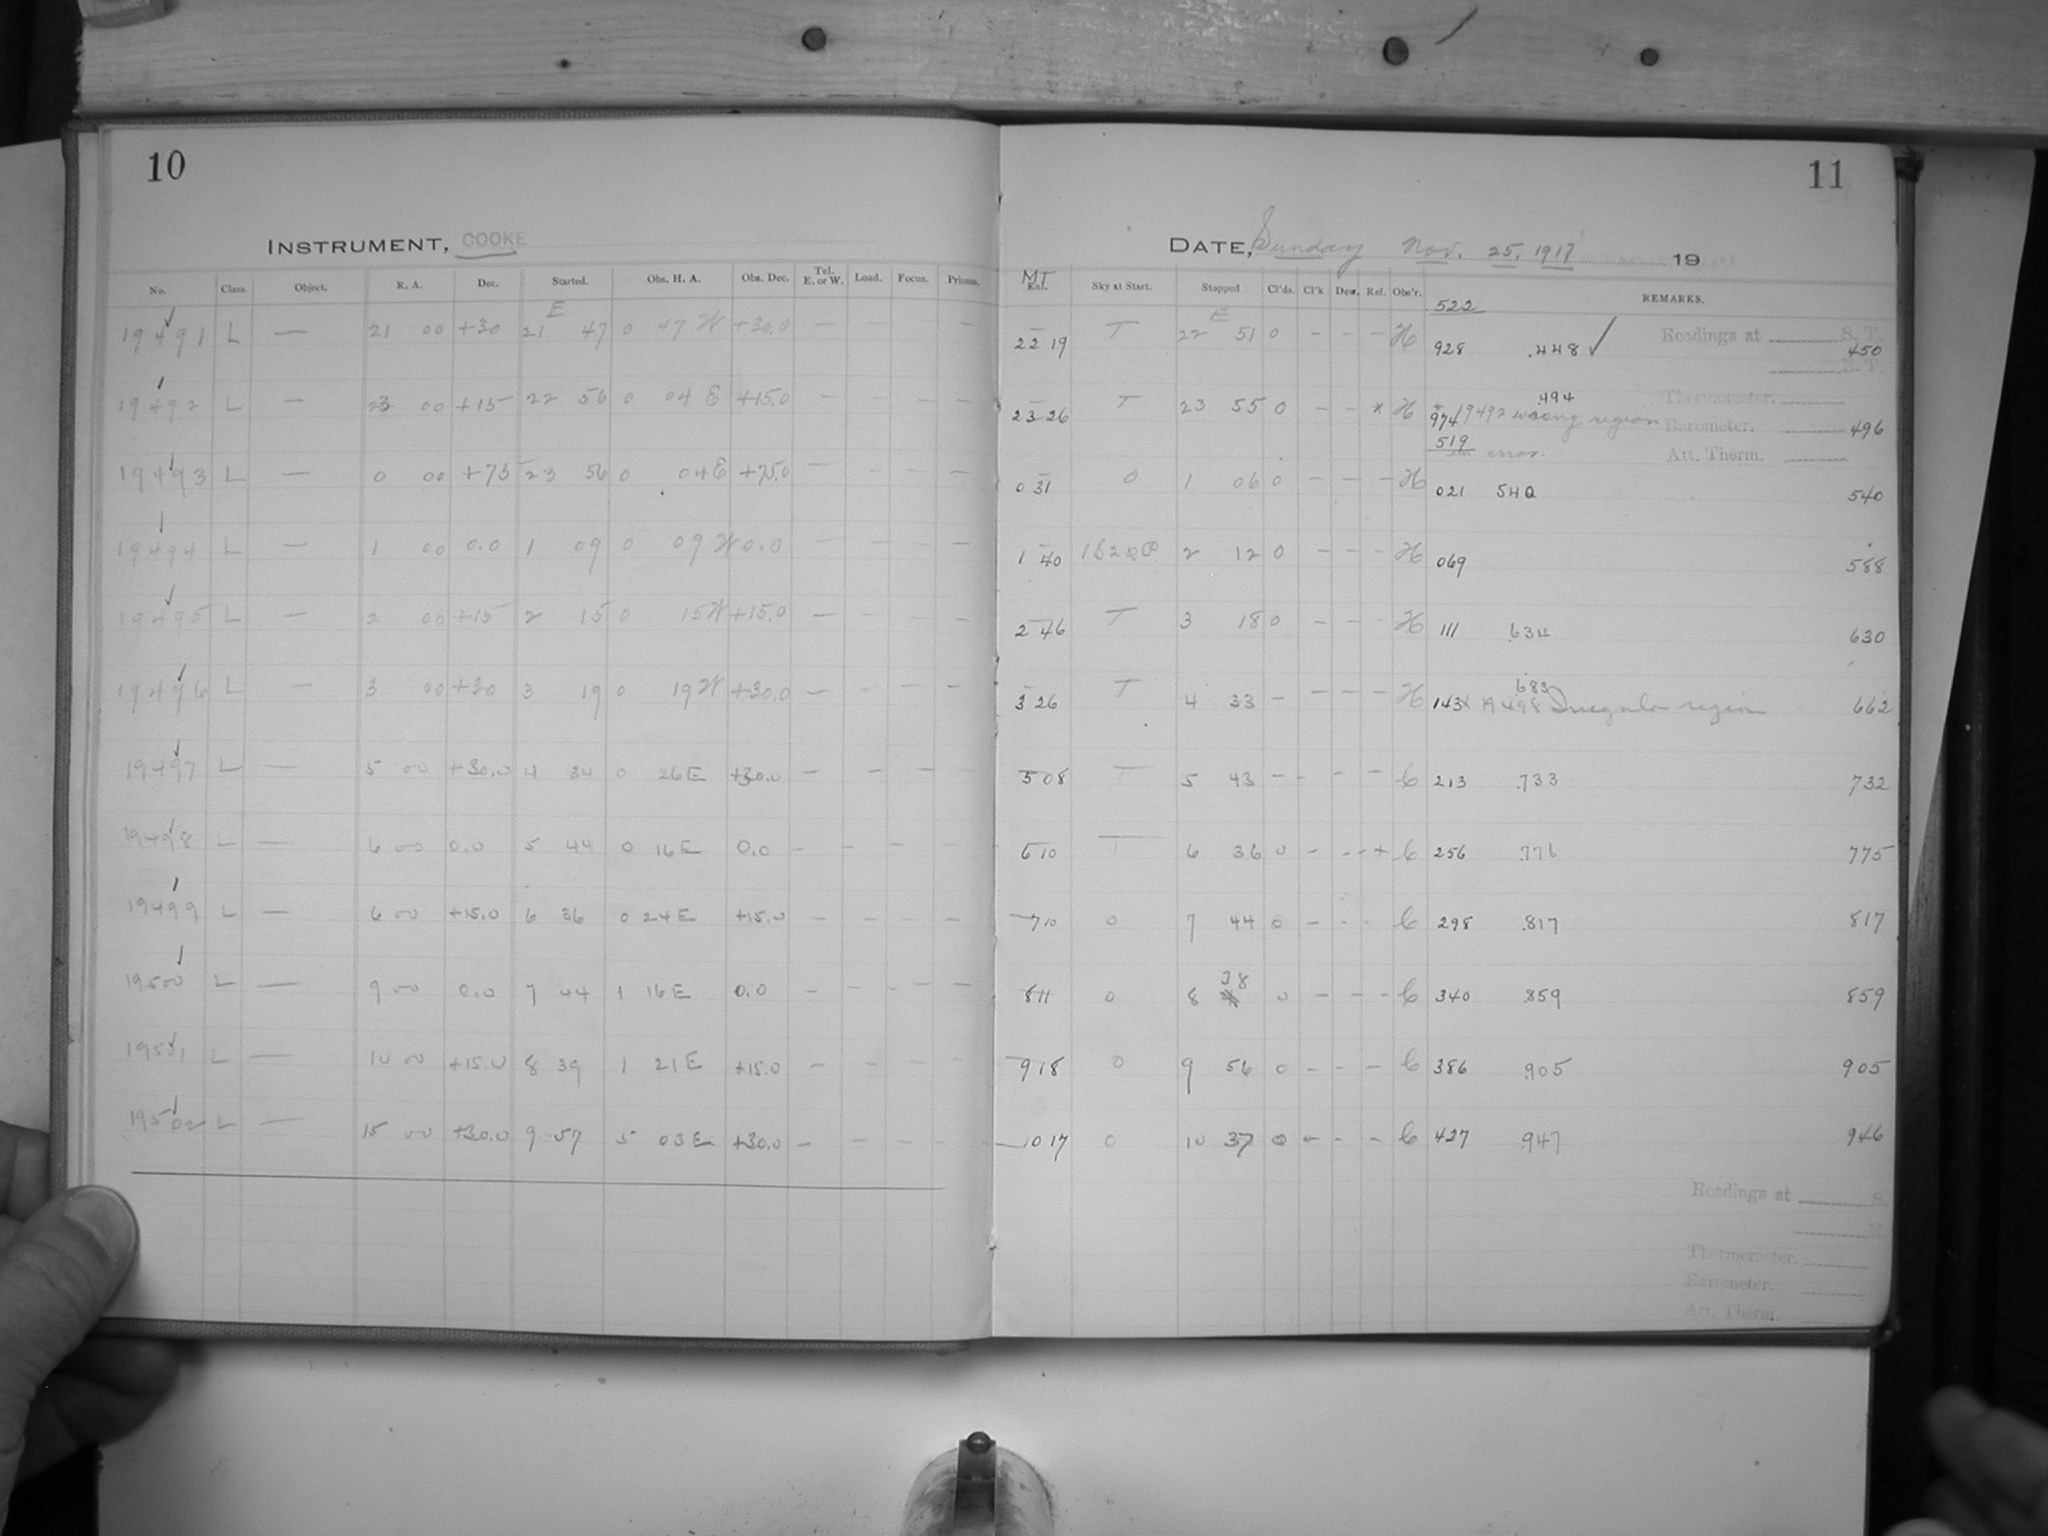 10
INSTRUMENT, COOKE
No. Class. Object. R. A. Dec. Started. Obs. H. A. Obs. Dec. Tel. E. or W. Load. Focus. Prisms.
19491 L — 21 00 +30 E 21 47 0 47 W +30.0 — — — —
19492 L — 23 00 +15 22 56 0 04 E +15.0 — — — —
19493 L — 0 00 +75 23 56 0 04 E +75.0 — — — —
19494 L — 1 00 0.0 1 09 0 09 W 0.0 — — — —
19495 L — 2 00 +15 2 15 0 15 W +15.0 — — — —
19496 L — 3 00 +30 3 19 0 19 W +30.0 — — — —
19497 L — 5 00 +30.0 4 34 0 26 E +30.0 — — — —
19498 L — 6 00 0.0 5 44 0 16 E 0.0 — — — —
19499 L — 6 00 +15.0 6 36 0 24 E +15.0 — — — —
19500 L — 9 00 0.0 7 44 1 16 E 0.0 — — — —
19501 L — 10 00 +15.0 8 39 1 21 E +15.0 — — — —
19502 L — 15 00 +30.0 9 57 5 03 E +30.0 — — — —
11
DATE, Sunday Nov. 25, 1917 19
MT
Sky at Start. Stopped Cl'ds. Cl'k Dew. Ref. Obs'r. REMARKS.
.522
22 19 T E 22 51 0 - - - H 928 .448 ✓ Readings at S. T. 450
E. T.
23 26 T 23 55 0 - - * H 974 .494 Thermometer. 496
* 19492 wrong region Barometer.
519 in error. Att. Therm.
0 31 0 1 06 0 - - - H 021 540 540
1 40 2 12 0 - - - H 069 588
2 46 T 3 18 0 - - - H 111 .634 630
3 26 T 4 33 - - - - H 143 683 19498 Irregular region 662
5 08 T 5 43 - - - - C 213 .733 732
6 10 T 6 36 0 - - + C 256 .776 775
7 10 0 7 44 0 - - - C 298 .817 817
8 11 0 8 38 0 - - - C 340 .859 859
9 18 0 9 56 0 - - - C 386 .905 905
10 17 0 10 37 0 - - - C 427 .947 946
Readings at S.
Thermometer.
Barometer.
Att. Therm.